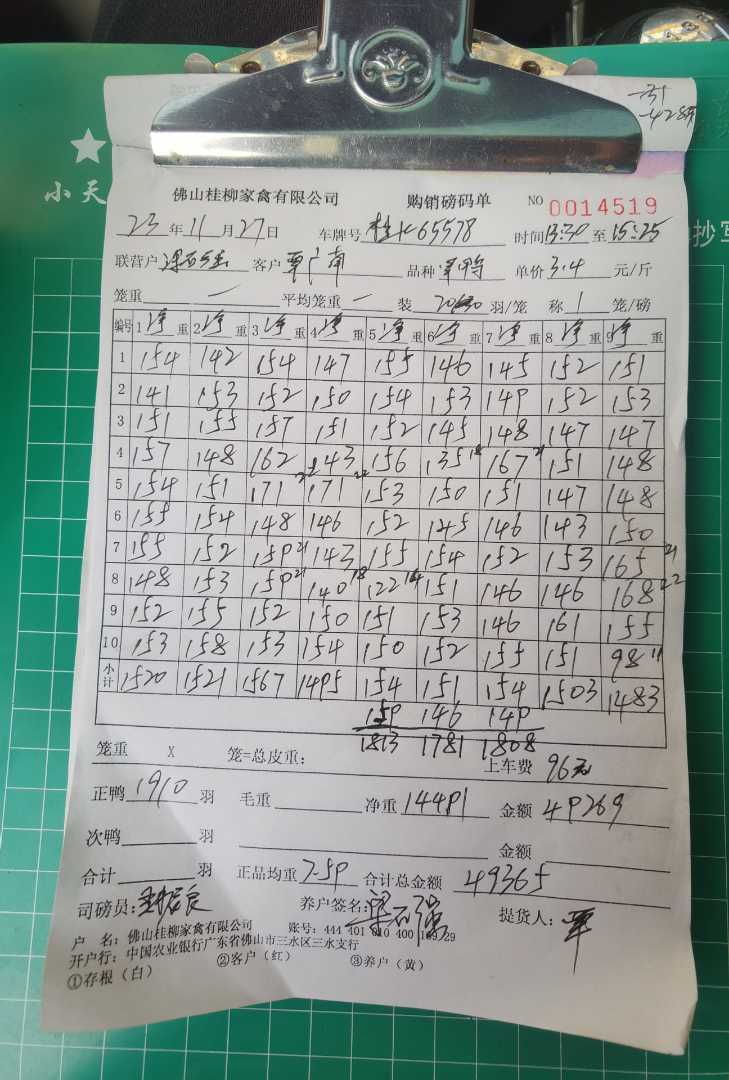 一31
一428只
小天
抄写
佛山桂柳家禽有限公司 购销磅码单 NO 0014519
23年11月27日 车牌号 桂K65578 时间13:30至15:25
联营户 客户 覃广南 品种 单价3.4元/斤
笼重 一 平均笼重 一 装 羽/笼 称1笼/磅
编号 1净重 2净重 3净重 4净重 5净重 6净重 7净重 8净重 9净重
1 154 142 154 147 155 146 145 152 151
2 141 153 152 150 154 153 149 152 153
3 151 155 157 151 152 145 148 147 147
4 157 148 162 143 156 135 18 167 21 151 148
5 154 151 171 22 171 22 153 150 151 147 148
6 155 154 148 146 152 145 146 143 150
7 155 152 159 21 143 155 154 152 153 165 21
8 148 153 159 21 140 18 122 14 151 146 146 168 22
9 152 155 152 150 151 153 146 161 155
10 153 158 153 154 150 152 155 151 98 11
小计 1520 1521 1567 1495 154 151 154 1503 1483
159 146 149
1813 1781 1808
笼重 X 笼=总皮重: 上车费 96元
正鸭1910羽 毛重 净重14491 金额49269
次鸭 羽 金额
合计 羽 正品均重7.59 合计总金额49365
司磅员: 养户签名: 提货人:覃
户 名: 佛山桂柳家禽有限公司 账号: 444 401 010 400 169 29
开户行: 中国农业银行广东省佛山市三水区三水支行
①存根(白) ②客户(红) ③养户(黄)